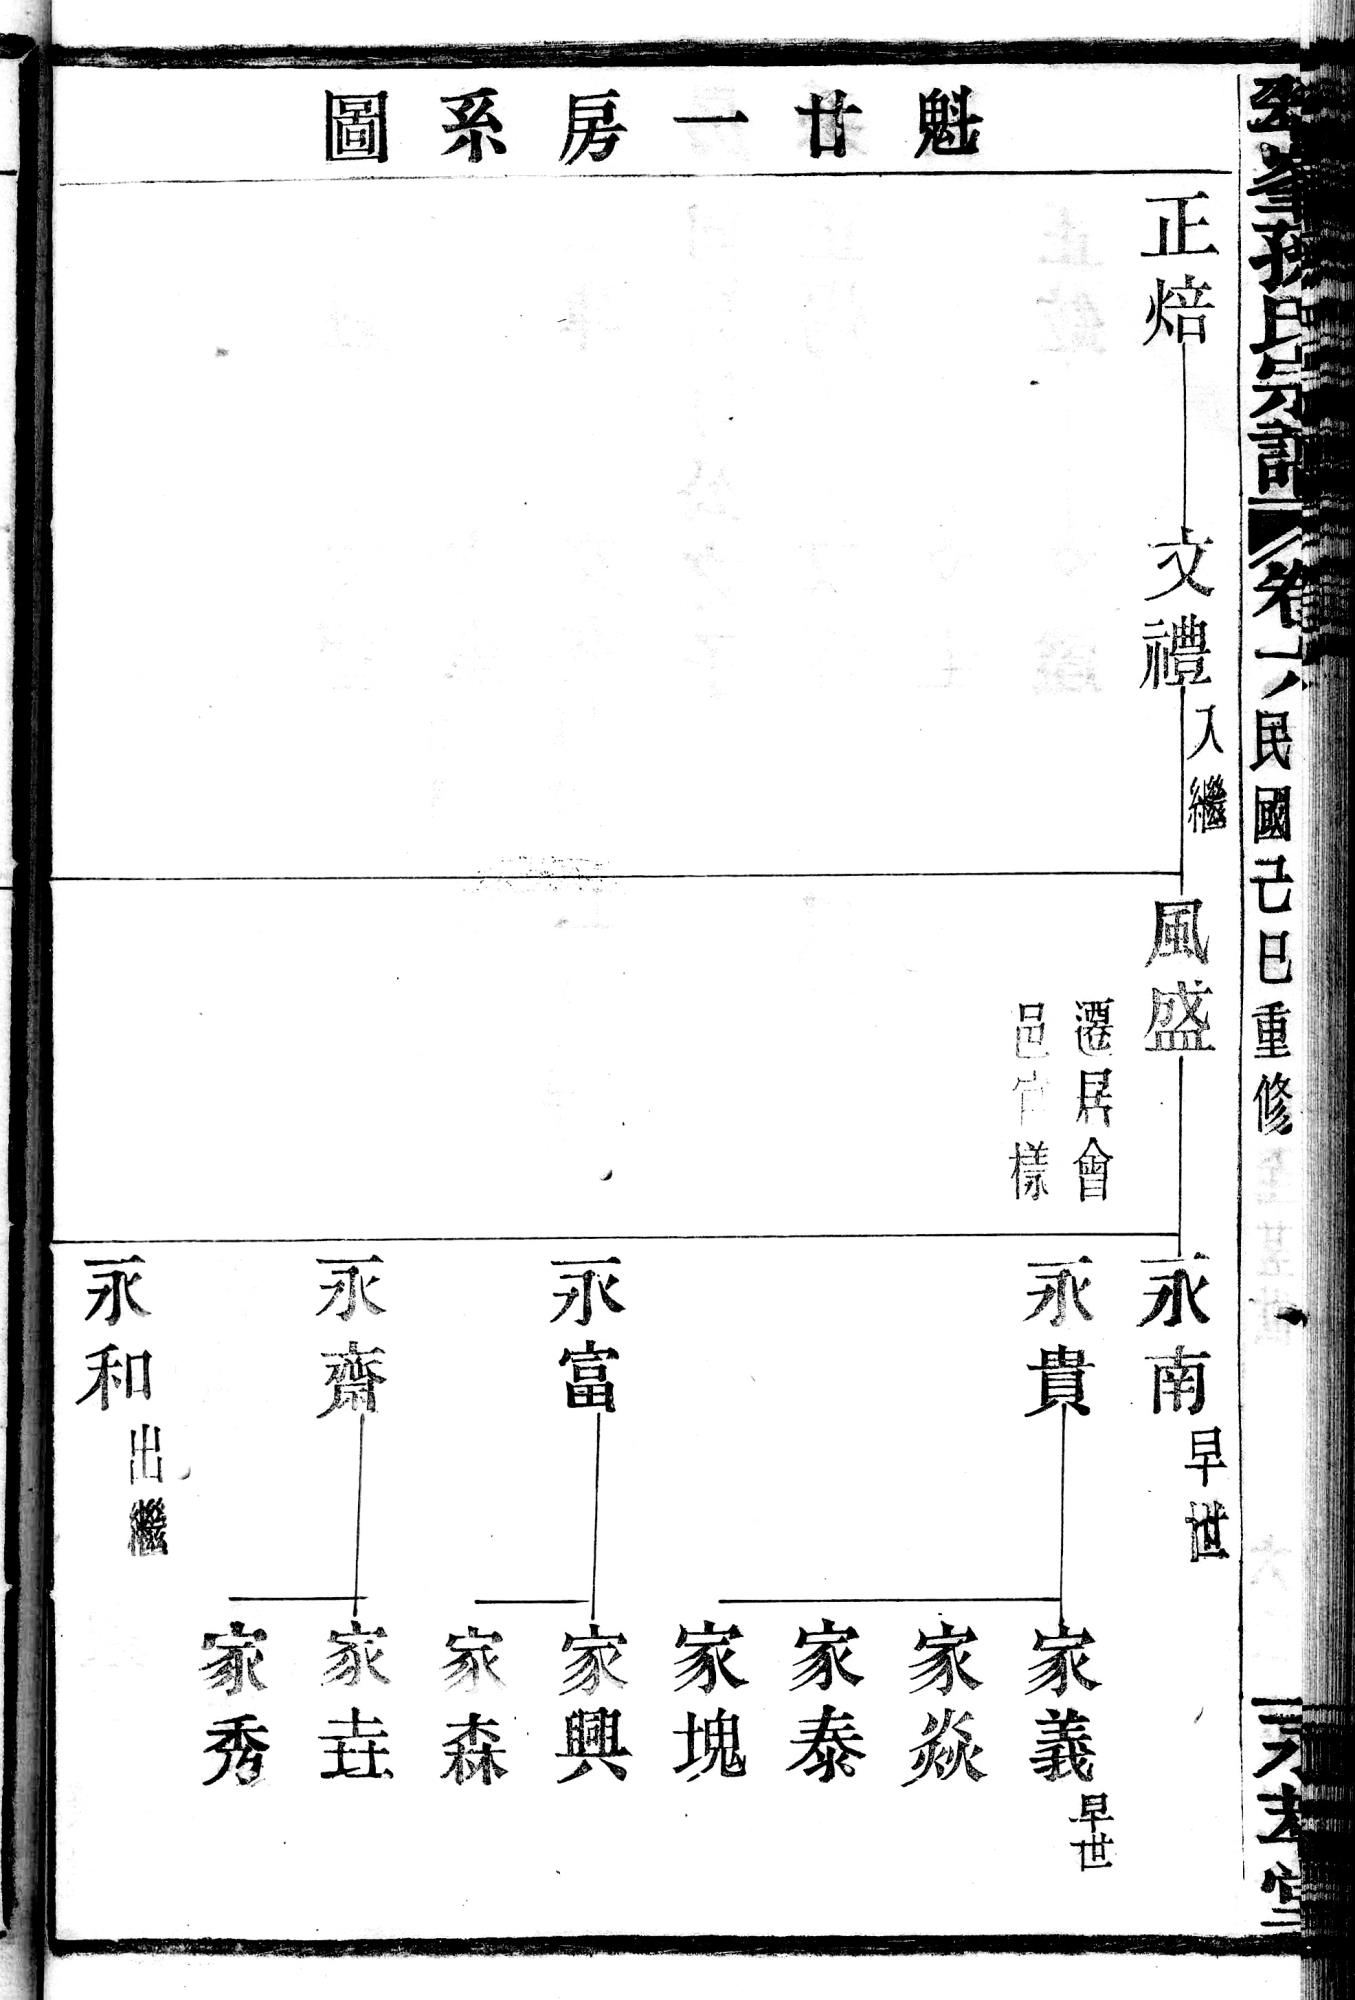 魁廿一房系圖
正焙
文禮
入繼
風盛
遷居會
邑官樣
永南
早世
永貴
永富
永齋
永和
出繼
家義
早世
家焱
家泰
家塊
家興
家森
家垚
家秀
孫氏宗譜
卷六
民國己巳重修